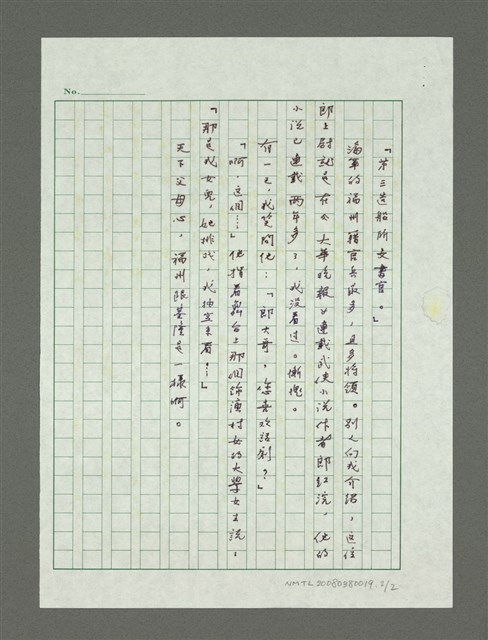 No.
「第三造船所文書官。」
海軍的福州籍官兵最多，且多將領。別人向我介紹，這位
郎上尉就是在《大華晚報》連載武俠小說作者郎紅浣。他的
小說已連載兩年多了，我沒看過。慚愧。
有一天，我笑問他：「郎大哥，您喜歡話劇？」
「啊，這個…」他指着舞台上那個飾演村女的大學女生說：
「那是我女兒，她排戲，我抽空來看！」
天下父母心，福州跟基隆是一樣啊。
NMTL20080380019.2/2